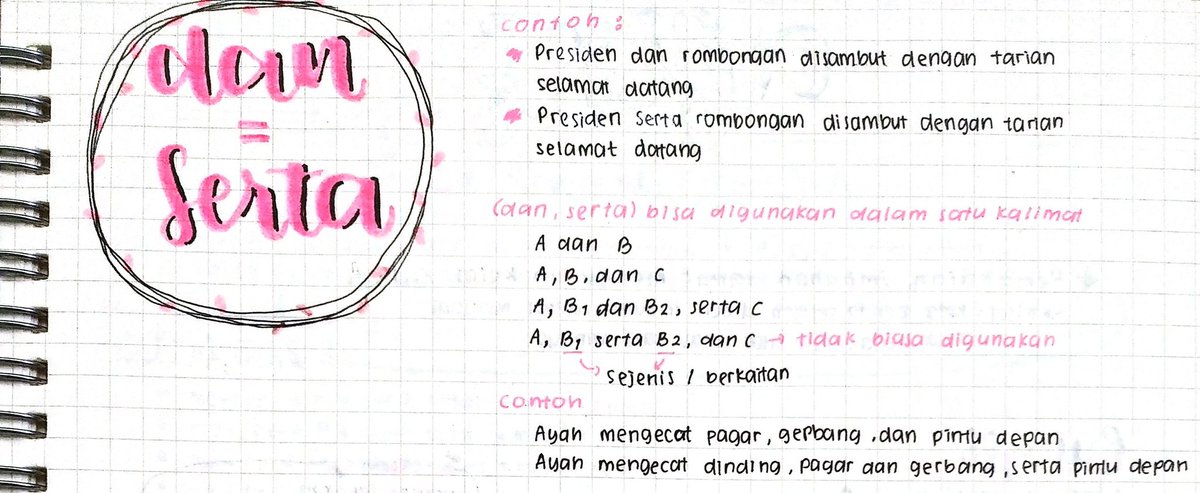 dan
=
Serta
contoh :
Presiden dan rombongan disambut dengan tarian
selamat datang
Presiden serta rombongan disambut dengan tarian
selamat datang
(dan, serta) bisa digunakan dalam satu kalimat
A dan B
A, B, dan C
A, B1 dan B2, serta C
A, B1 serta B2, dan C → tidak biasa digunakan
sejenis / berkaitan
contoh
Ayah mengecat pagar, gerbang, dan pintu depan
Ayah mengecat dinding, pagar dan gerbang, serta pintu depan